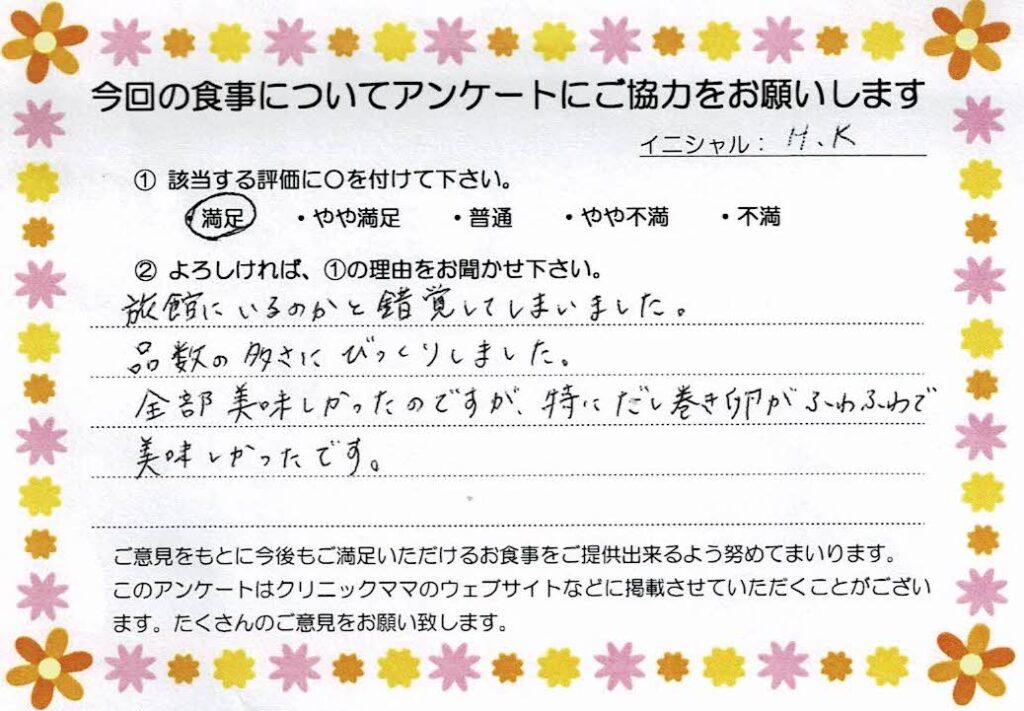 今回の食事についてアンケートにご協力をお願いします
イニシャル： H、K
① 該当する評価に〇を付けて下さい。
・満足 ・やや満足 ・普通 ・やや不満 ・不満
② よろしければ、①の理由をお聞かせ下さい。
旅館にいるのかと錯覚してしまいました。
品数の多さにびっくりしました。
全部美味しかったのですが、特にだし巻き卵がふわふわで
美味しかったです。
ご意見をもとに今後もご満足いただけるお食事をご提供出来るよう努めてまいります。
このアンケートはクリニックママのウェブサイトなどに掲載させていただくことがござい
ます。たくさんのご意見をお願い致します。